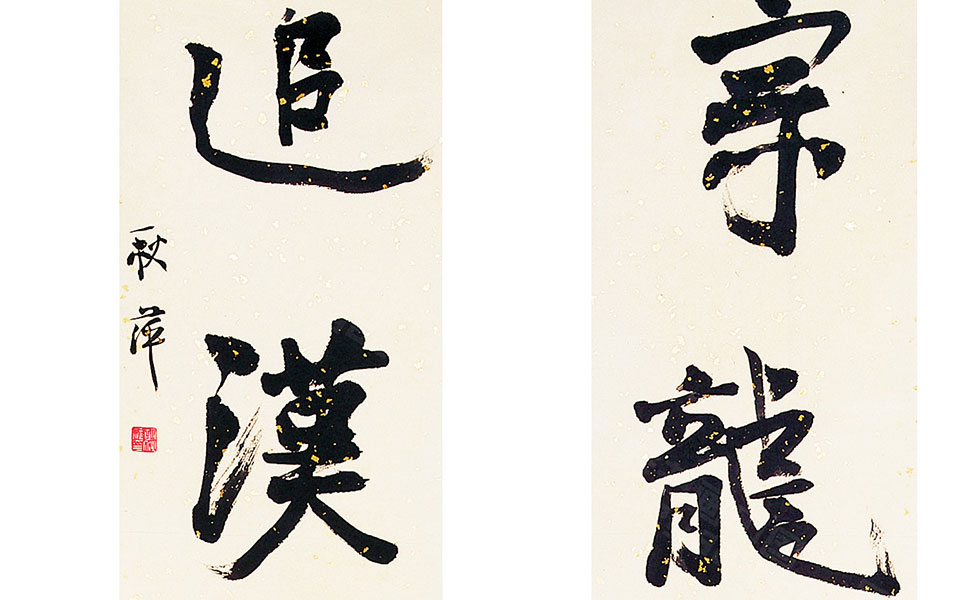 宗龍
追漢
秋萍